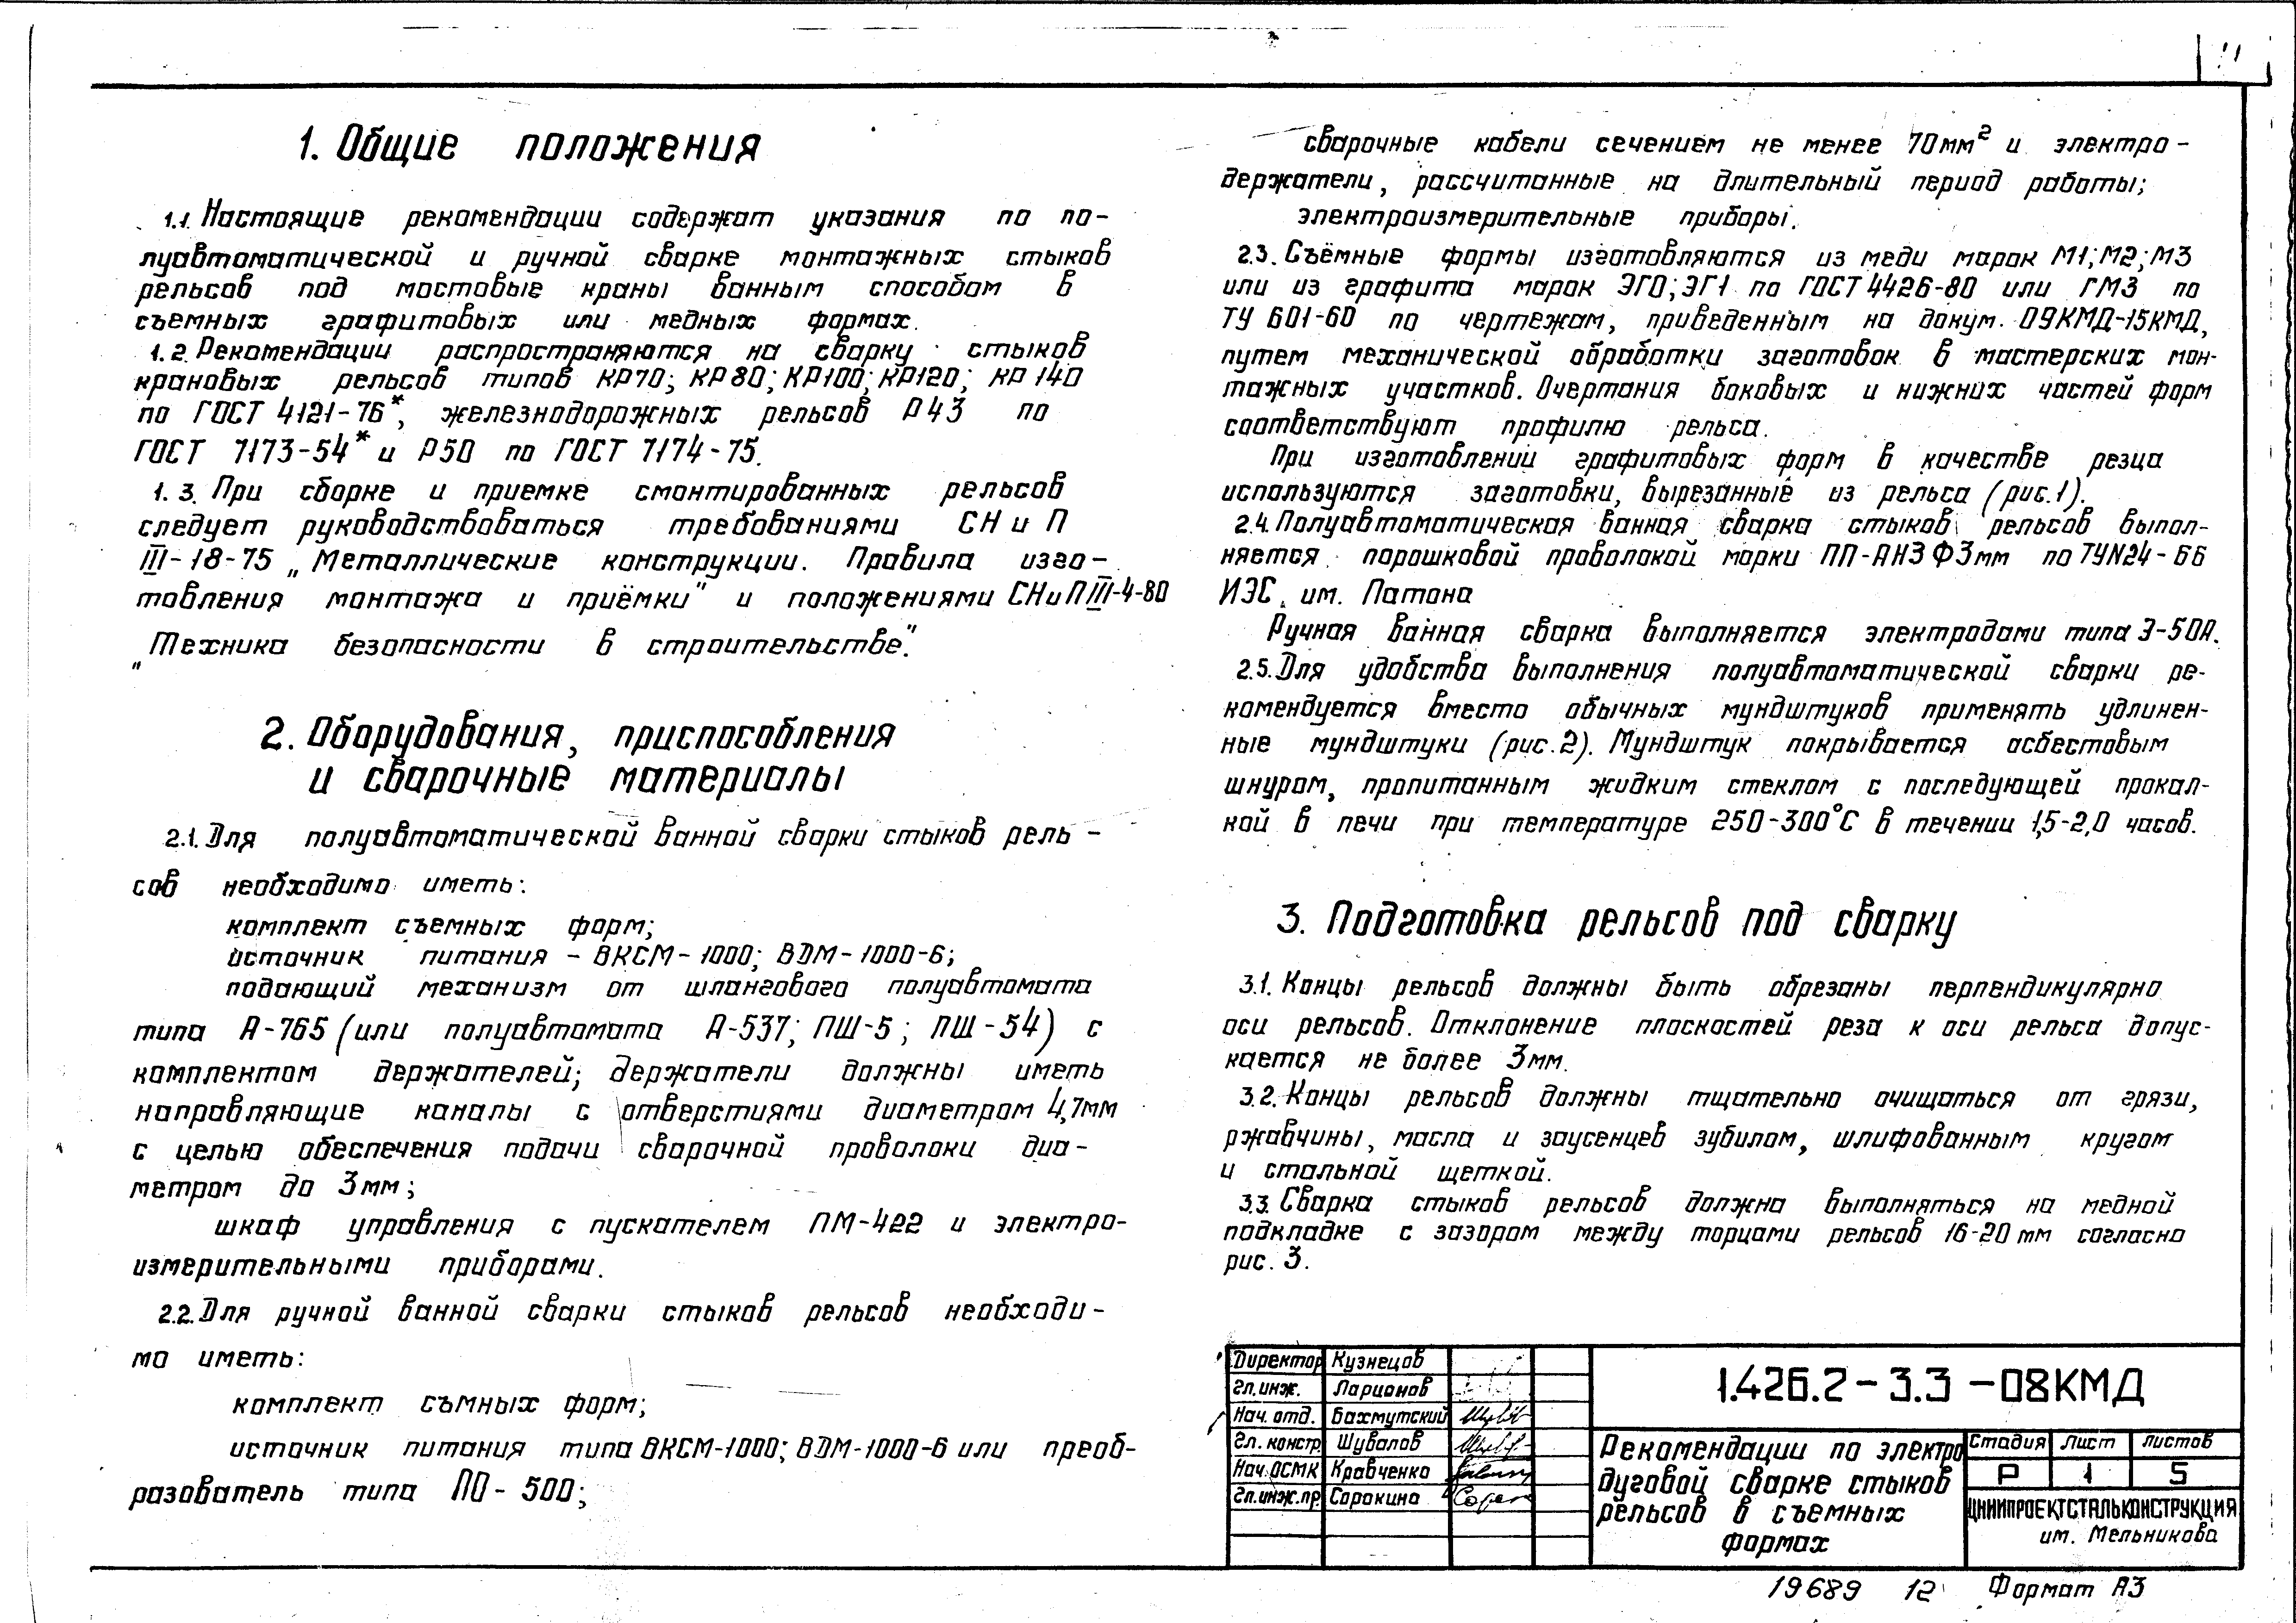 1. Общие положения
1.1. Настоящие рекомендации содержат указания по по-
луавтоматической и ручной сварке монтажных стыков
рельсов под мостовые краны ванным способом в
съемных графитовых или медных формах.
1.2. Рекомендации распространяются на сварку стыков
крановых рельсов типов КР70; КР80; КР100; КР120; КР140
по ГОСТ 4121-76*, железнодорожных рельсов Р43 по
ГОСТ 7173-54* и Р50 по ГОСТ 7174-75.
1.3. При сборке и приемке смонтированных рельсов
следует руководствоваться требованиями СНиП
III-18-75 „Металлические конструкции. Правила изго-
товления монтажа и приёмки" и положениями СНиП III-4-80
„Техника безопасности в строительстве".
2. Оборудования, приспособления
и сварочные материалы
2.1. Для полуавтоматической ванной сварки стыков рель-
сов необходимо иметь:
комплект съемных форм;
источник питания - ВКСМ-1000; ВДМ-1000-6;
подающий механизм от шлангового полуавтомата
типа А-765 (или полуавтомата А-537; ПШ-5; ПШ-54) с
комплектом держателей; держатели должны иметь
направляющие каналы с отверстиями диаметром 4,7мм
с целью обеспечения подачи сварочной проволоки диа-
метром до 3мм;
шкаф управления с пускателем ПМ-422 и электро-
измерительными приборами.
2.2. Для ручной ванной сварки стыков рельсов необходи-
мо иметь:
комплект съмных форм;
источник питания типа ВКСМ-1000; ВДМ-1000-6 или преоб-
разователь типа ПО-500;
сварочные кабели сечением не менее 70мм² и электро-
держатели, рассчитанные на длительный период работы;
электроизмерительные приборы.
2.3. Съёмные формы изготовляются из меди марок М1; М2; М3
или из графита марок ЭГ0; ЭГ1 по ГОСТ 4426-80 или ГМЗ по
ТУ 601-60 по чертежам, приведенным на докум. 09КМД-15КМД,
путем механической обработки заготовок в мастерских мон-
тажных участков. Очертания боковых и нижних частей форм
соответствуют профилю рельса.
При изготовлений графитовых форм в качестве резца
используются заготовки, вырезанные из рельса (рис.1).
2.4. Полуавтоматическая ванная сварка стыков рельсов выпол-
няется порошковой проволокой марки ПП-АН3 Ф3мм по ТУN24-66
ИЭС им. Патона
Ручная ванная сварка выполняется электродами типа Э-50А.
2.5. Для удобства выполнения полуавтоматической сварки ре-
комендуется вместо обычных мундштуков применять удлинен-
ные мундштуки (рис.2). Мундштук покрывается асбестовым
шнуром, пропитанным жидким стеклом с последующей прокал-
кой в печи при температуре 250-300°С в течении 1,5-2,0 часов.
3. Подготовка рельсов под сварку
3.1. Концы рельсов должны быть обрезаны перпендикулярно
оси рельсов. Отклонение плоскостей реза к оси рельса допус-
кается не более 3мм.
3.2. Концы рельсов должны тщательно очищаться от грязи,
ржавчины, масла и заусенцев зубилом, шлифованным кругом
и стальной щеткой.
3.3. Сварка стыков рельсов должна выполняться на медной
подкладке с зазором между торцами рельсов 16-20 мм согласно
рис. 3.
Директор Кузнецов
Гл.инж. Ларионов
Нач. отд. Бахмутский
Гл. констр. Шувалов
Нач.ОСМК Кравченко
Гл.инж.пр. Сорокина
1.426.2-3.3-08КМД
Рекомендации по электро
дуговой сварке стыков
рельсов в съемных
формах
Стадия Лист Листов
Р 1 5
ЦНИИПРОЕКТСТАЛЬКОНСТРУКЦИЯ
им. Мельникова
19689 12 Формат А3